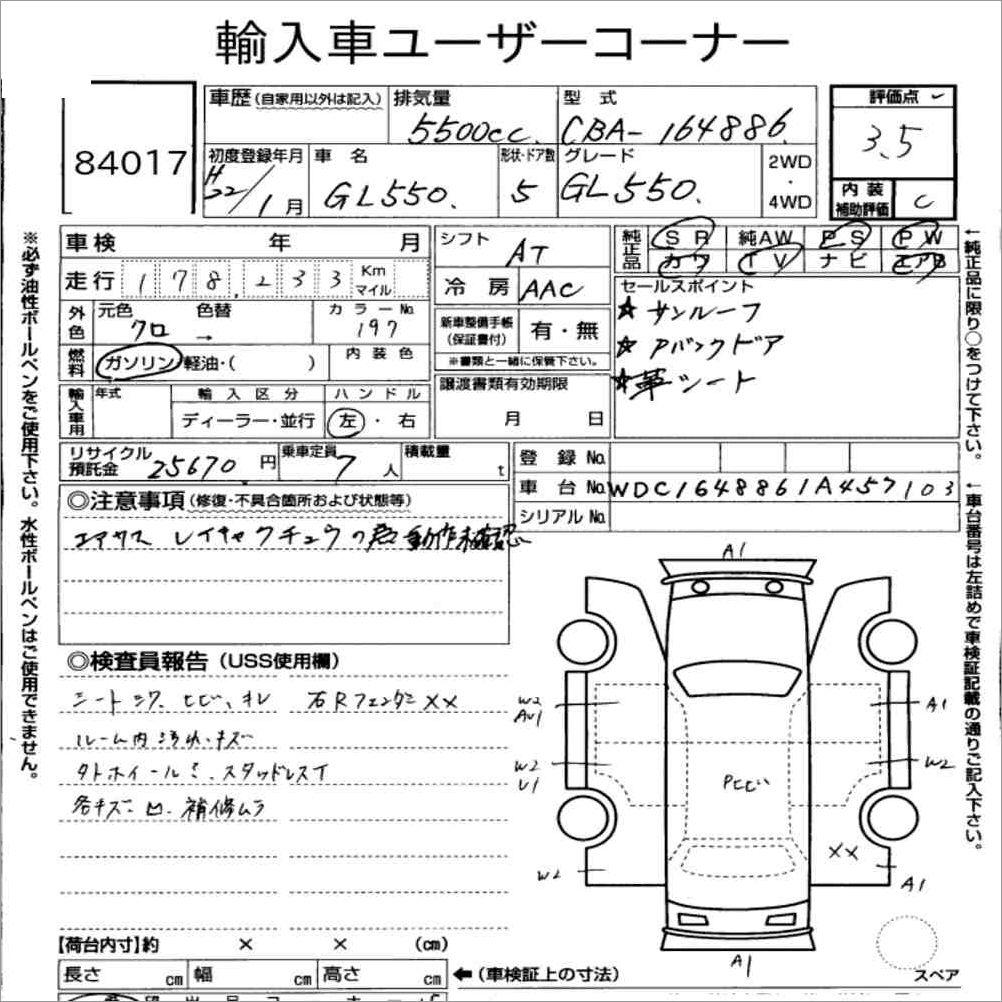 輸入車ユーザーコーナー
84017
車歴(自家用以外は記入) 排気量 5500cc. 型式 CBA-164886.
評価点 3.5
初度登録年月 H22/1月 車名 GL550. 形状・ドア数 5 グレード GL550. 2WD・4WD
内装補助評価 C
車検 年 月 シフト AT
純正品 SR 純AW PS PW
カワ TV ナビ エアB
走行 178,233 Km マイル 冷房 AAC
セールスポイント
☆サンルーフ
☆Pバックドア
☆革シート
外色 元色 クロ → 色替 カラーNo. 197
新車整備手帳(保証書付) 有・無
※書類と一緒に保管下さい。
燃料 ガソリン 軽油・( ) 内装色
譲渡書類有効期限
月 日
輸入車用 年式 輸入区分 ハンドル
ディーラー・並行 左・右
リサイクル預託金 25670円 乗車定員 7人 積載量 t
登録No.
車台No. WDC1648861A457103
シリアルNo.
◎注意事項(修復・不具合箇所および状態等)
エアサス レイキャクチュウの為 動作未確認
◎検査員報告(USS使用欄)
シートシワ、ヒビ、キレ 右Rフェンダー××
ルーム内汚れ・キズ
各キズ 凹 補修ムラ
A1
W2
A1
W2
W2
A1
××
A1
A1
スペア
【荷台内寸】約 × × (cm)
長さ cm 幅 cm 高さ cm ←(車検証上の寸法)
※必ず油性ボールペンをご使用下さい。水性ボールペンはご使用できません。
←純正品に限り○をつけて下さい。
←車台番号は左詰めで車検証記載の通りご記入下さい。